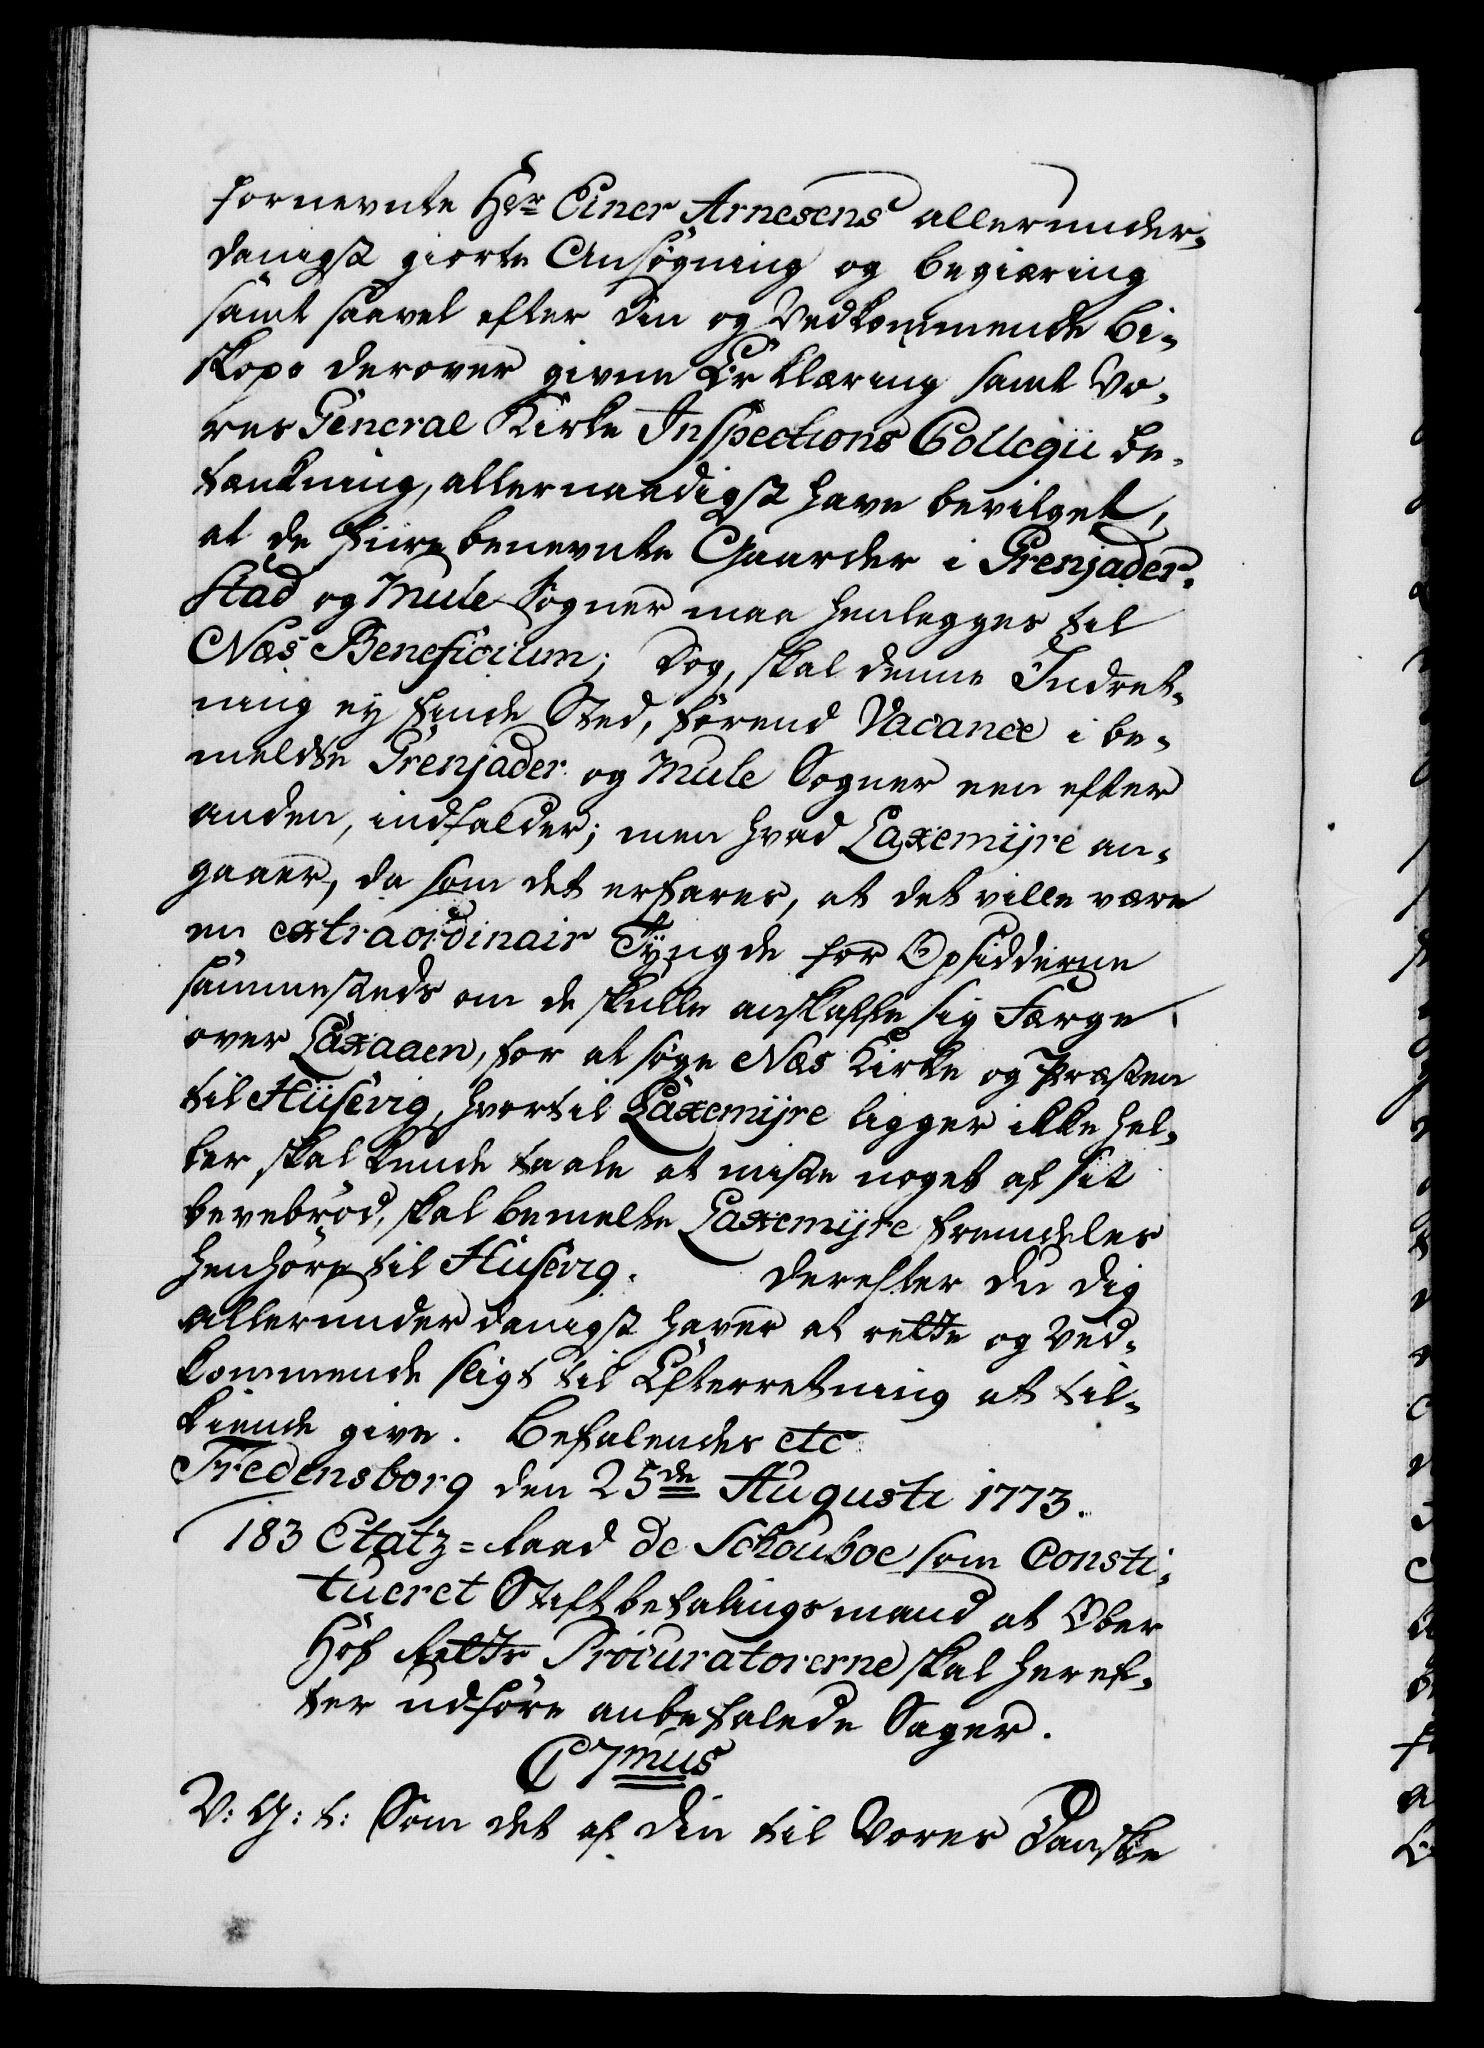 fornevnte Hr Einer Arnesens allerunder-
danigst giorte Ansøgning og begiæring
samt saavel efter din og Vedkommende Bi-
skops derover givne Erklæring samt Vo-
res General Kirke Inspections Collegii be-
tænkning, allernaadigst have bevilget,
at de fiire benevnte Gaarder i Grenjader-
stad og Mule Sogner maa henlegges til
Næs Beneficium; dog, skal denne Indret-
ning ey finde Sted, førend Vacance i be-
meldte Grenjader og Mule Sogner een efter
anden, indfalder; men hvad Laxemijre an-
gaaer, da som det erfares, at det ville være
en extraordinair Tyngde for Opsidderne
sammesteds om de skulle anskaffe sig Færge
over Laxaaen, for at søge Næs Kirke og Præsten
til Husevig, hvortil Laxemijre ligger ikke hel-
ler skal kunde taale at miste noget af sit
levebrød, skal bemelte Laxemijre fremdeles
henhøre til Husevig. Derefter du dig
allerunderdanigst haver at rette og Ved-
kommende sligt til Efterretning at til-
kiende give. Befalendes etc
Fredensborg den 25de Augusti 1773.
183 Etatz=Raad de Schouboe som Consti-
tueret Stiftbefalingsmand at Ober
Hof Retts Procuratorerne skal heref-
ter udføre anbefalede Sager.
C 7mus
V: G: t: Som det af din til Vores Danske